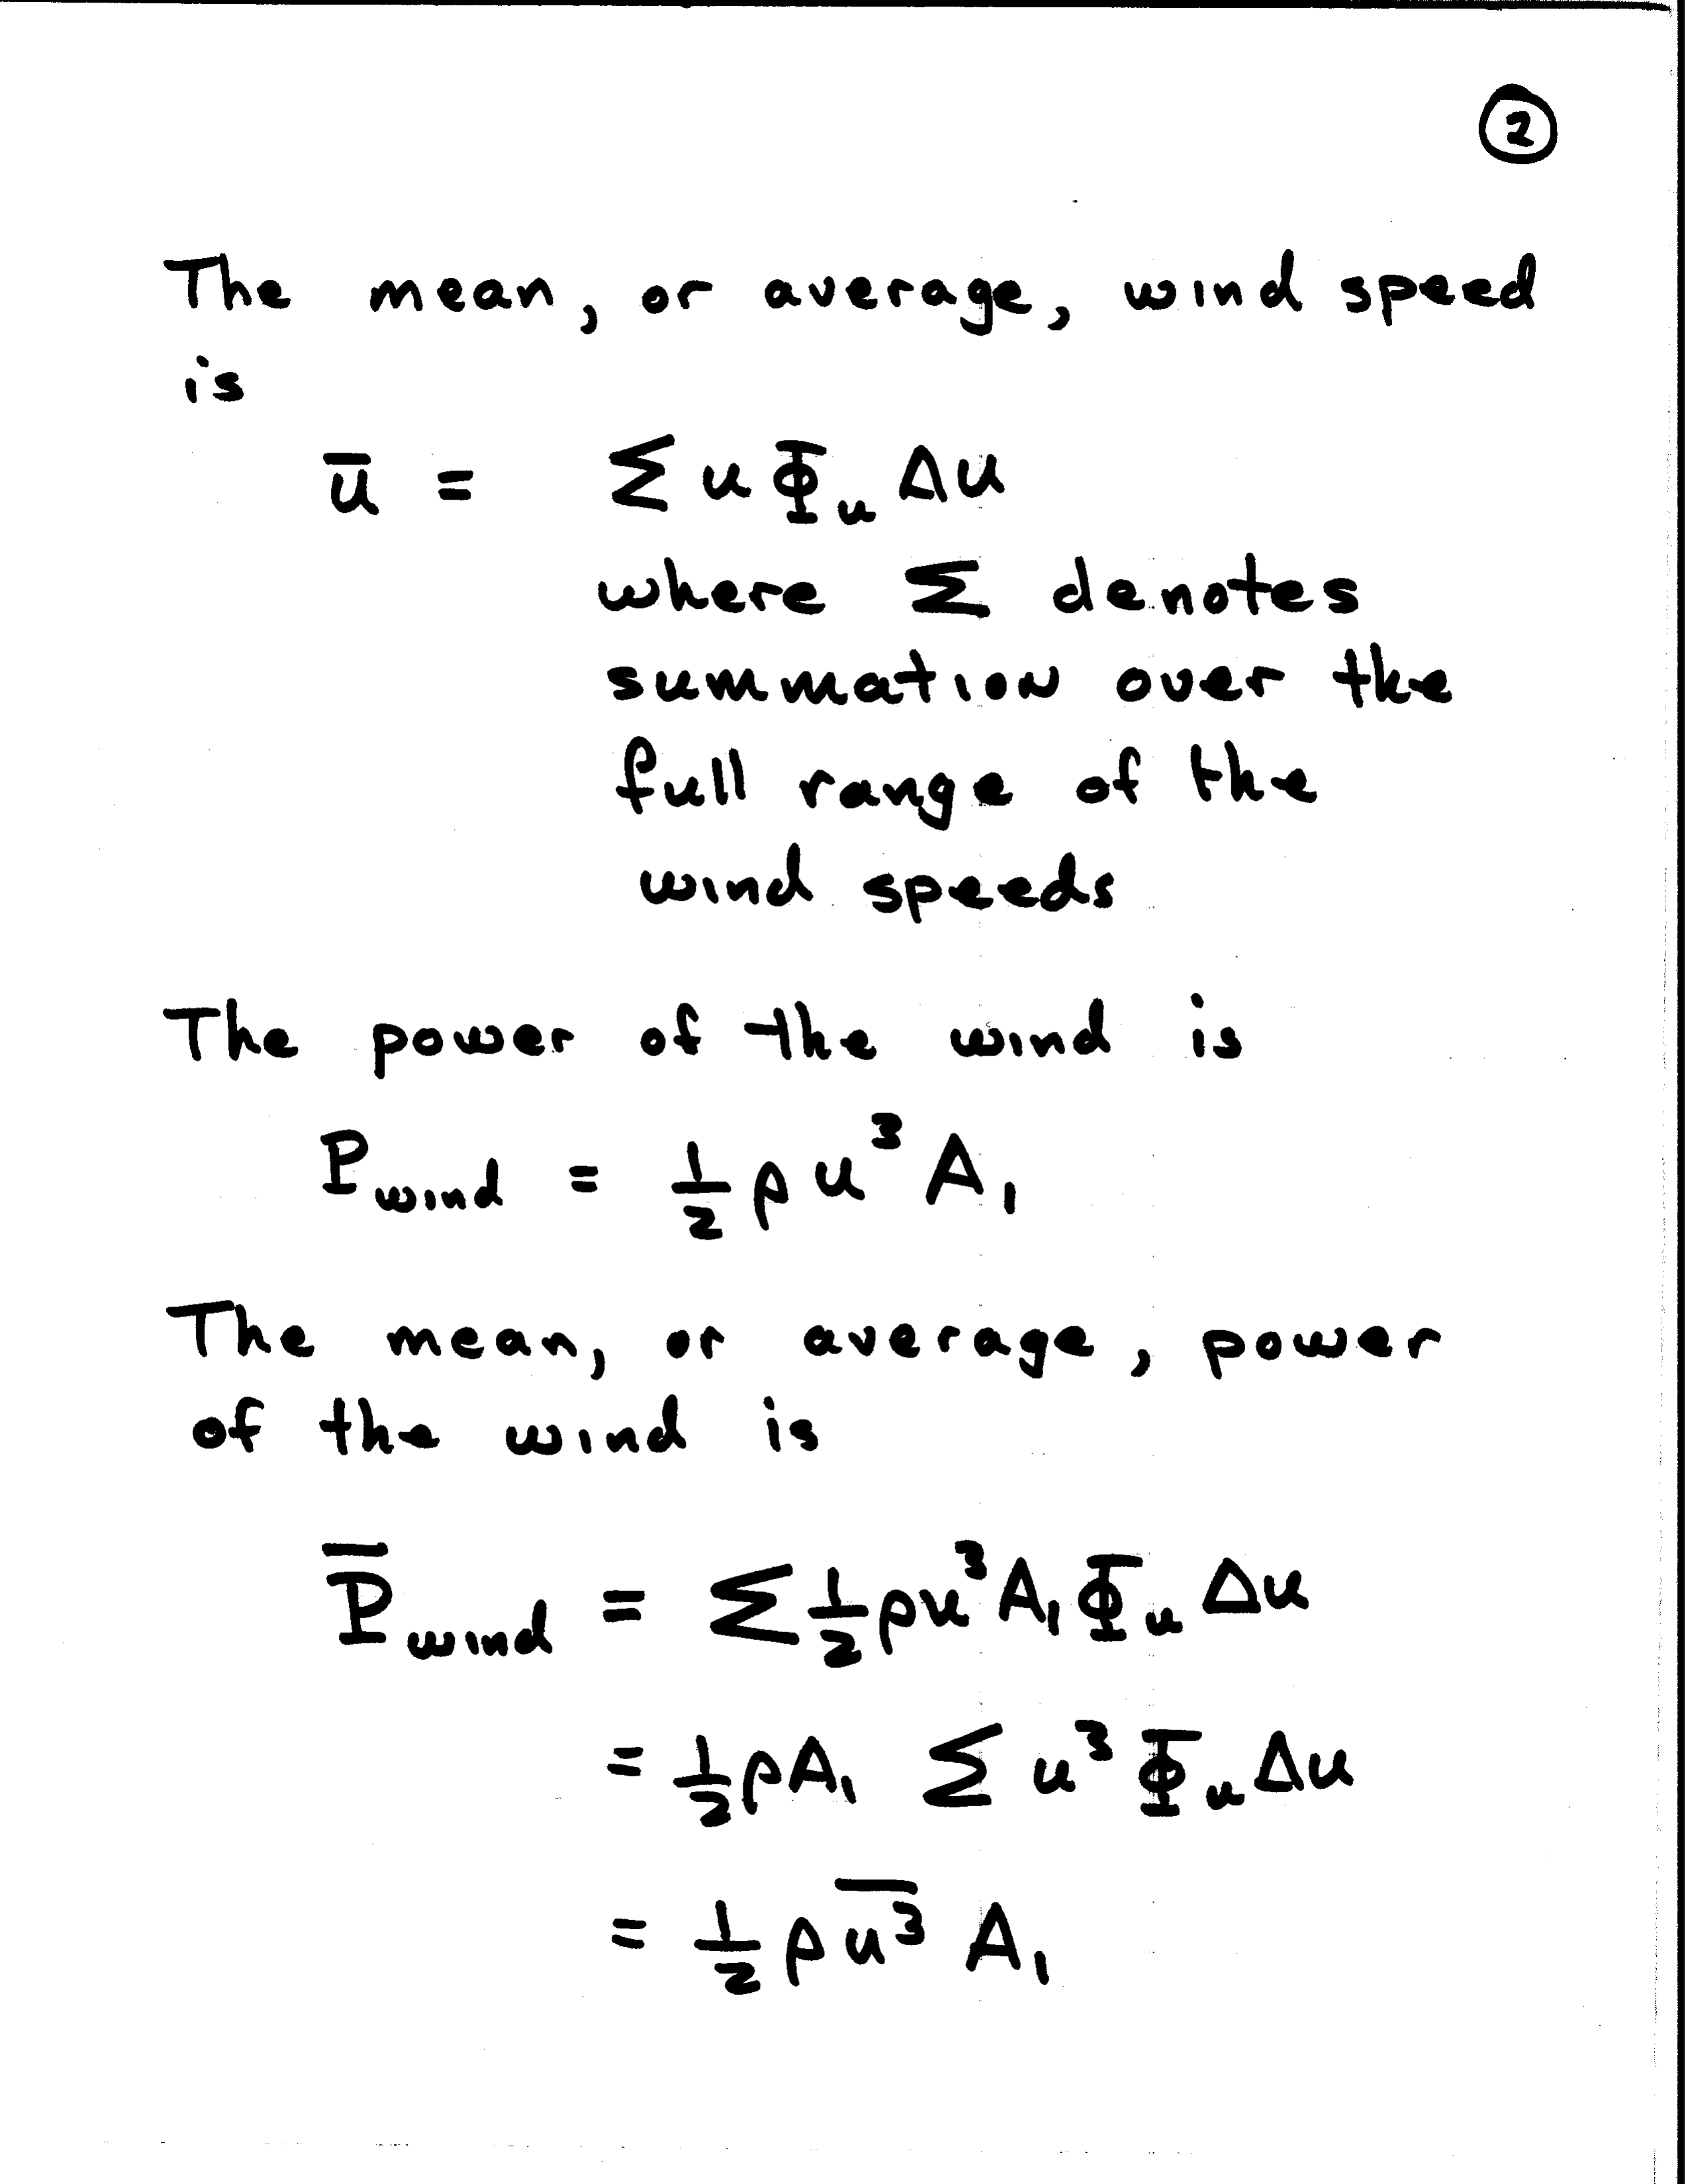 2
The mean, or average, wind speed
is
ū = Σ u Φᵤ Δu
where Σ denotes
summation over the
full range of the
wind speeds
The power of the wind is
P_wind = ½ ρ u³ A₁
The mean, or average, power
of the wind is
P̅_wind = Σ ½ ρu³ A₁ Φᵤ Δu
= ½ ρA₁ Σ u³ Φᵤ Δu
= ½ ρ u̅³̅ A₁